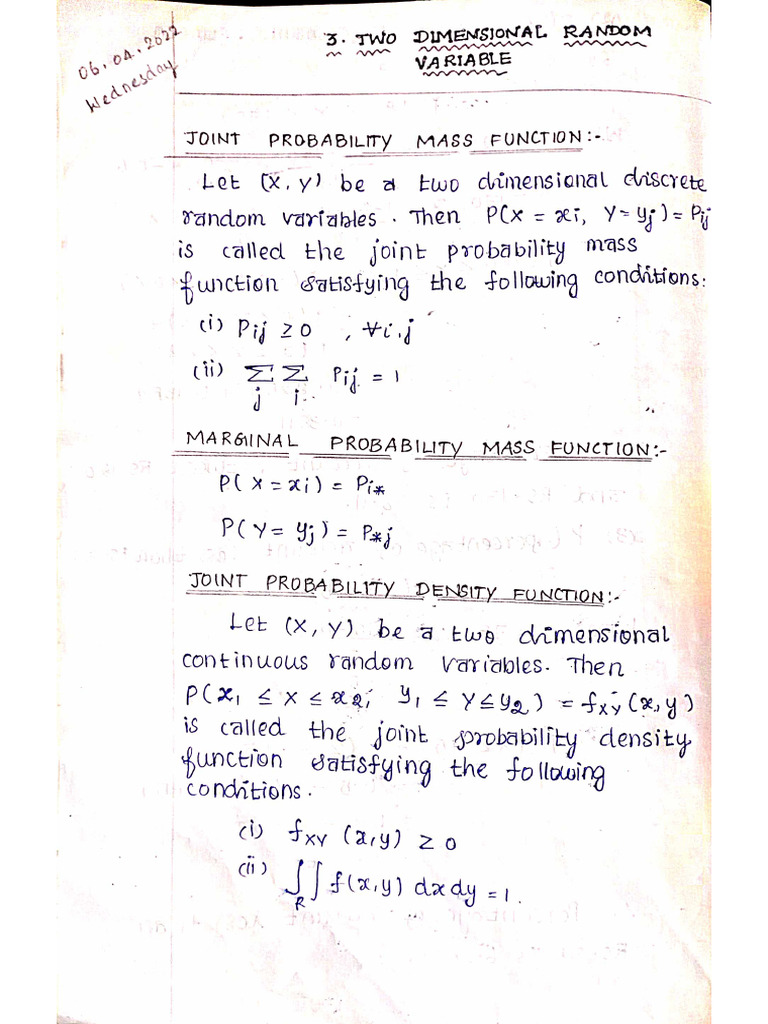 06.04.2022
Wednesday
3. TWO DIMENSIONAL RANDOM
VARIABLE
JOINT PROBABILITY MASS FUNCTION:-
Let (X, Y) be a two dimensional discrete
random variables. Then P(X = xi, Y = yj) = Pij
is called the joint probability mass
function satisfying the following conditions:
(i) Pij ≥ 0 , ∀i.j
(ii) Σ Σ Pij = 1
j i
MARGINAL PROBABILITY MASS FUNCTION:-
P(X = xi) = Pi*
P(Y = yj) = P*j
JOINT PROBABILITY DENSITY FUNCTION:-
Let (X, Y) be a two dimensional
continuous random variables. Then
P(x1 ≤ X ≤ x2; y1 ≤ Y ≤ y2) = fXY (x,y)
is called the joint probability density
function satisfying the following
conditions.
(i) fXY (x,y) ≥ 0
(ii) ∫∫ f(x,y) dx dy = 1.
R